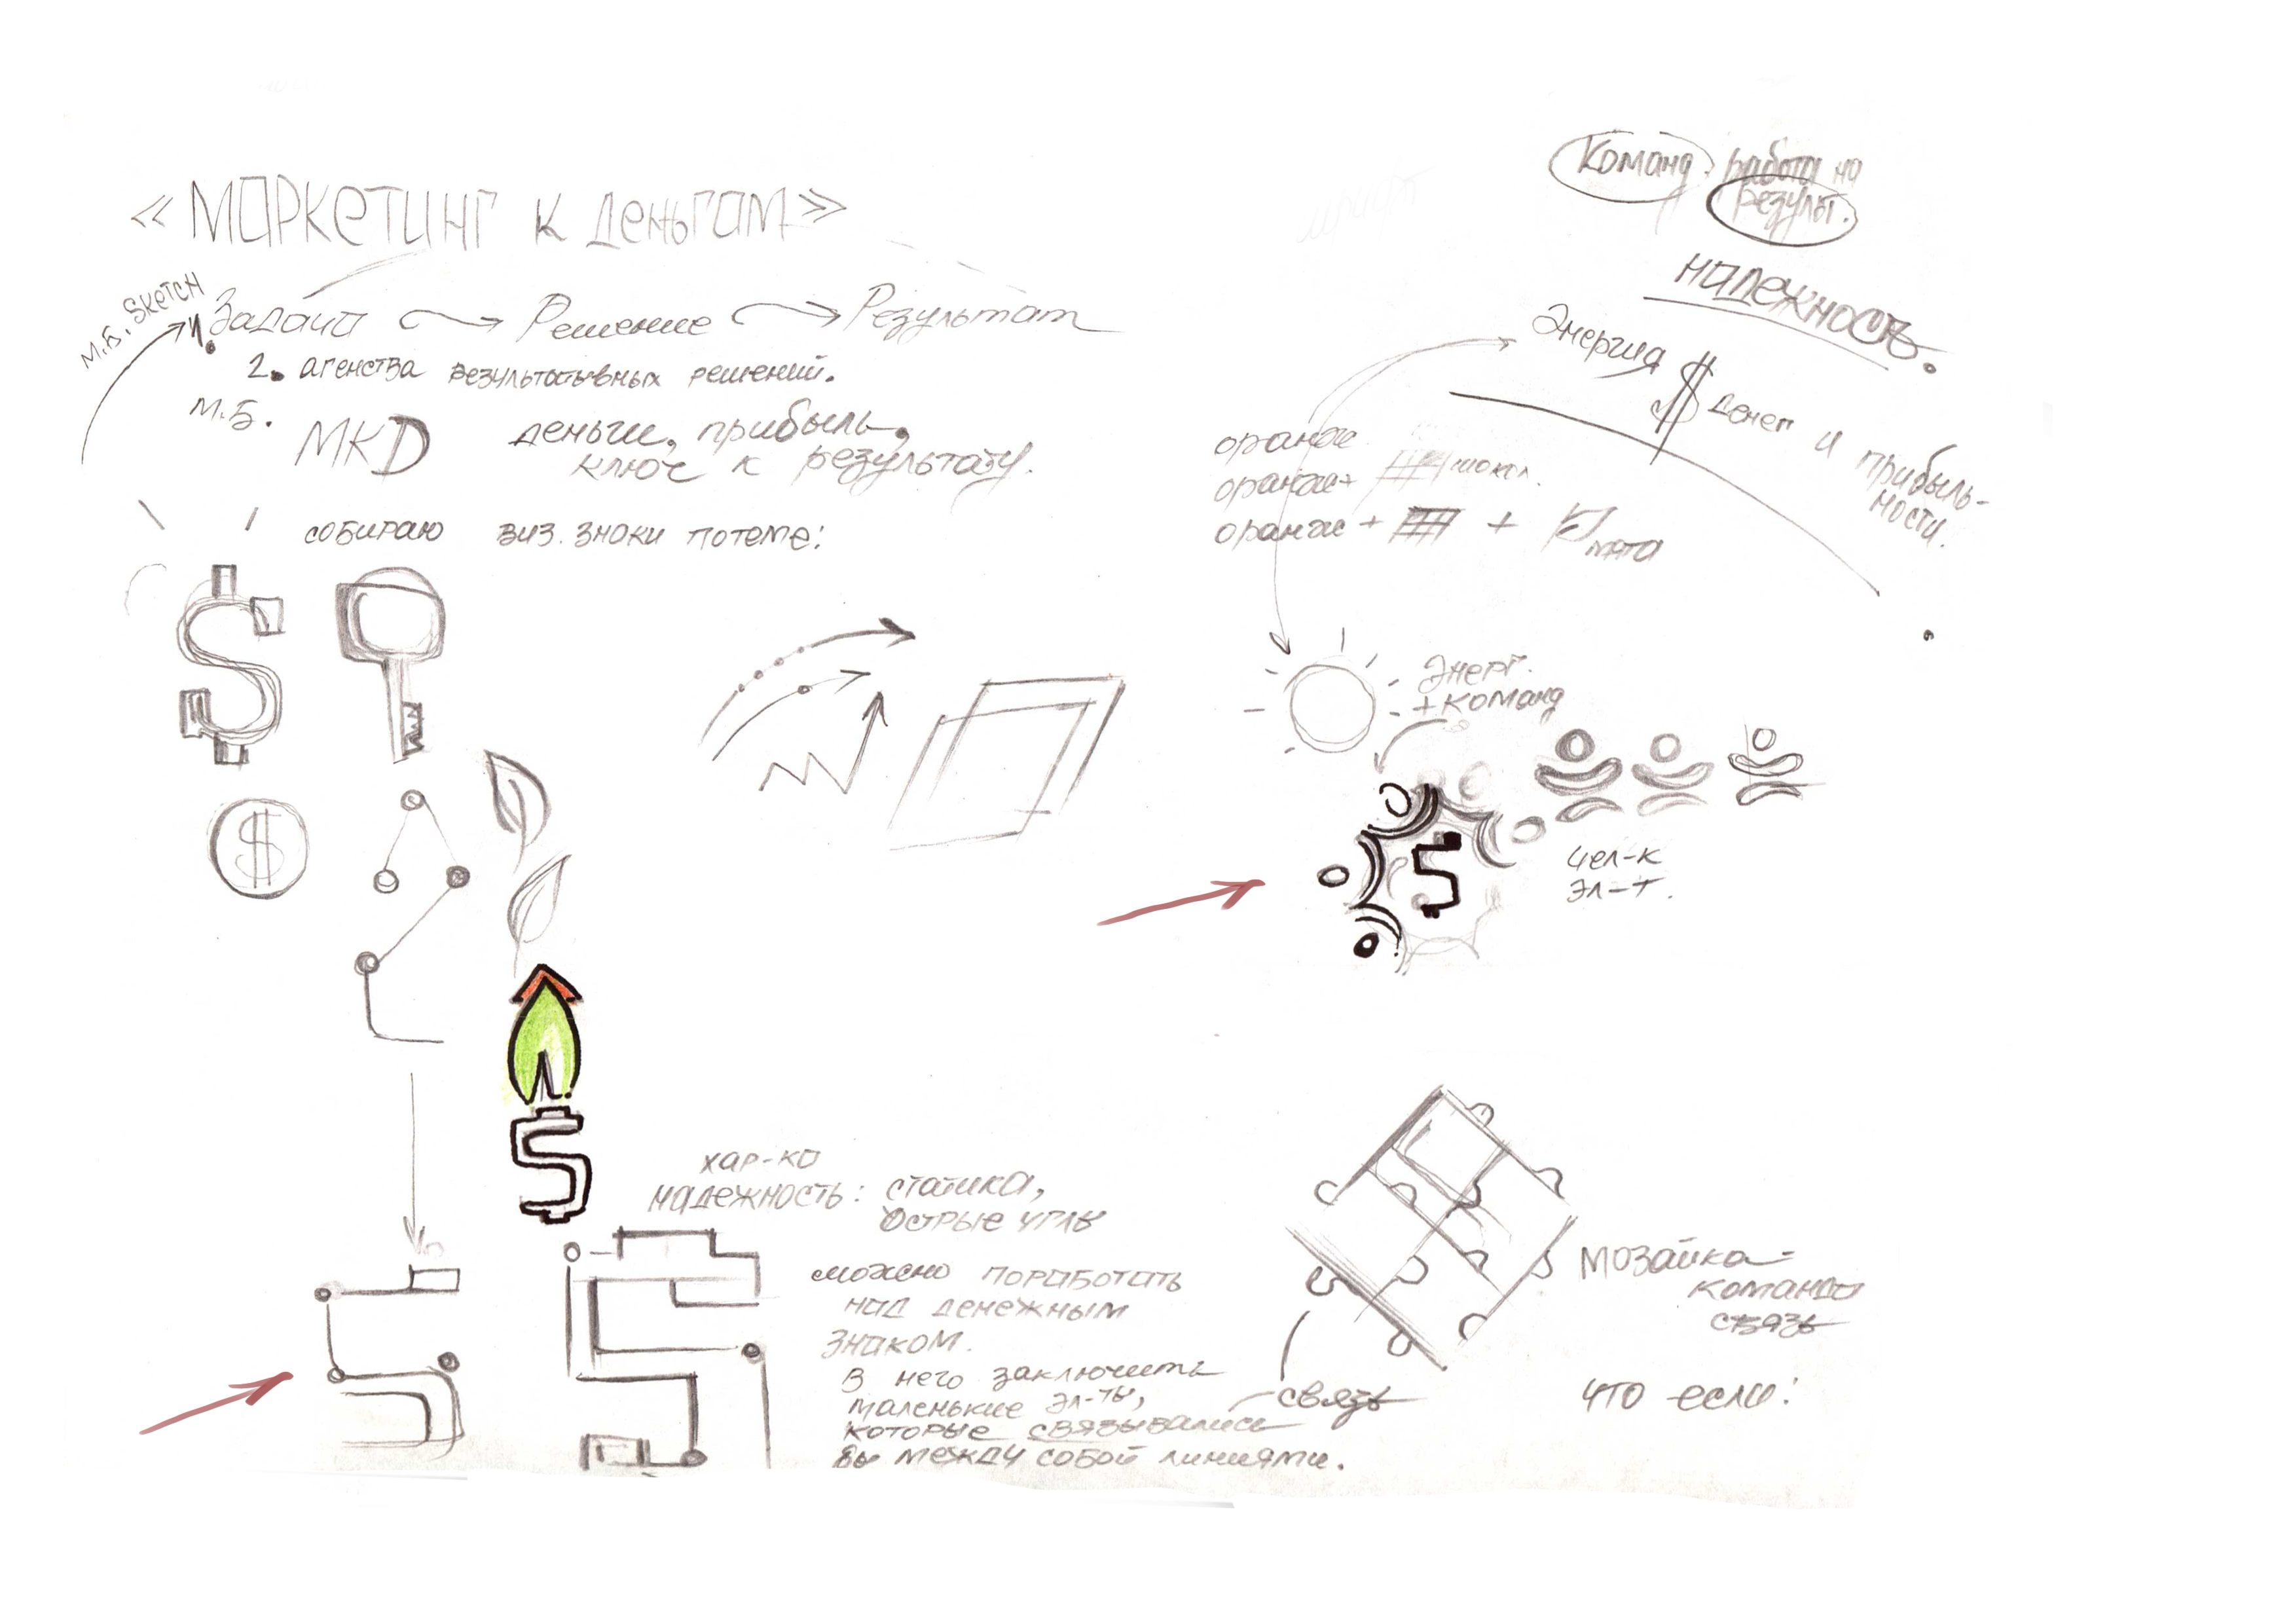 «Маркетинг к деньгам»
М.Б. SKETCH
1. Задача Решение Результат
2. агенства результативных решений.
М.Б.
MKD деньги, прибыль,
ключ к результату.
собираю виз. знаки по теме:
Команд. работа на
результ.
надежность.
Энергия $ денег и прибыль-
ности.
оранж
оранж + шокол.
оранж + + мята
Энерг.
+ команд
$
чел-к
эл-т.
хар-ка
надежность: статика,
острые углы
можно поработать
над денежным
знаком.
в него заключить
маленькие эл-ты,
которые связывались
бы между собой линиями.
связь
Мозайка =
команда
связь
что если: